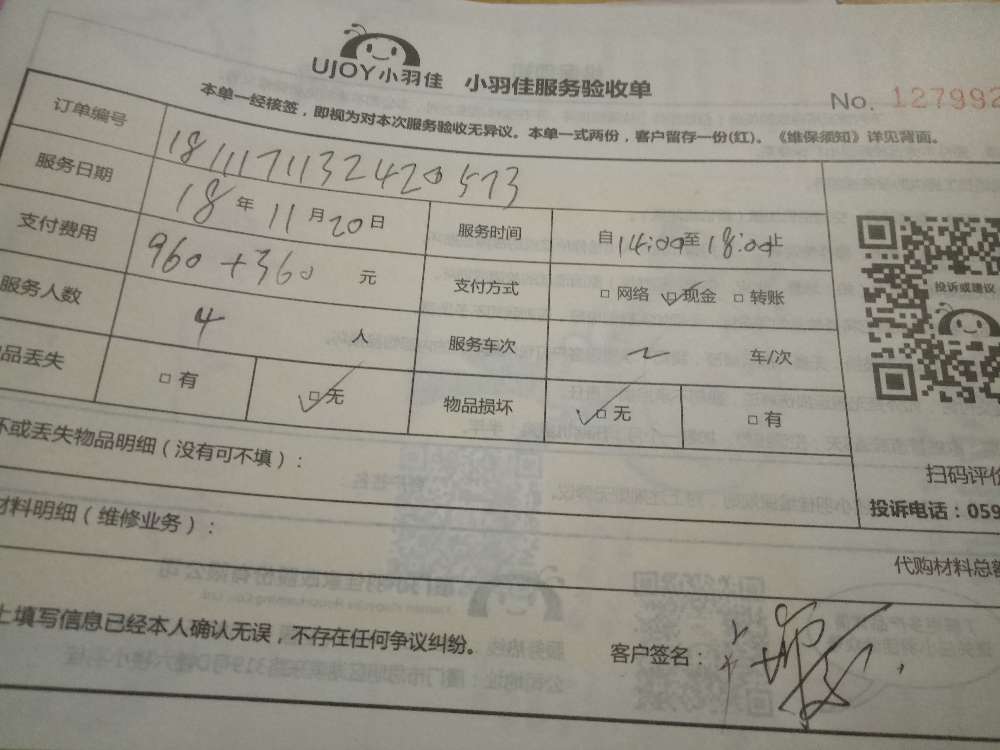 UJOY小羽佳 小羽佳服务验收单
No. 127992
本单一经核签，即视为对本次服务验收无异议。本单一式两份，客户留存一份(红)。《维保须知》详见背面。
订单编号 181117113242
服务日期 18年11月20日 服务时间 自14:00至18:00止
支付费用 960+360元 支付方式 □网络 □现金 □转账
服务人数 4人 服务车次 车/次
品丢失 □有 □无 物品损坏 □无 □有
投诉或建议
坏或丢失物品明细（没有可不填）：
扫码评价
投诉电话：059
材料明细（维修业务）：
代购材料总额
上填写信息已经本人确认无误，不存在任何争议纠纷。
客户签名：